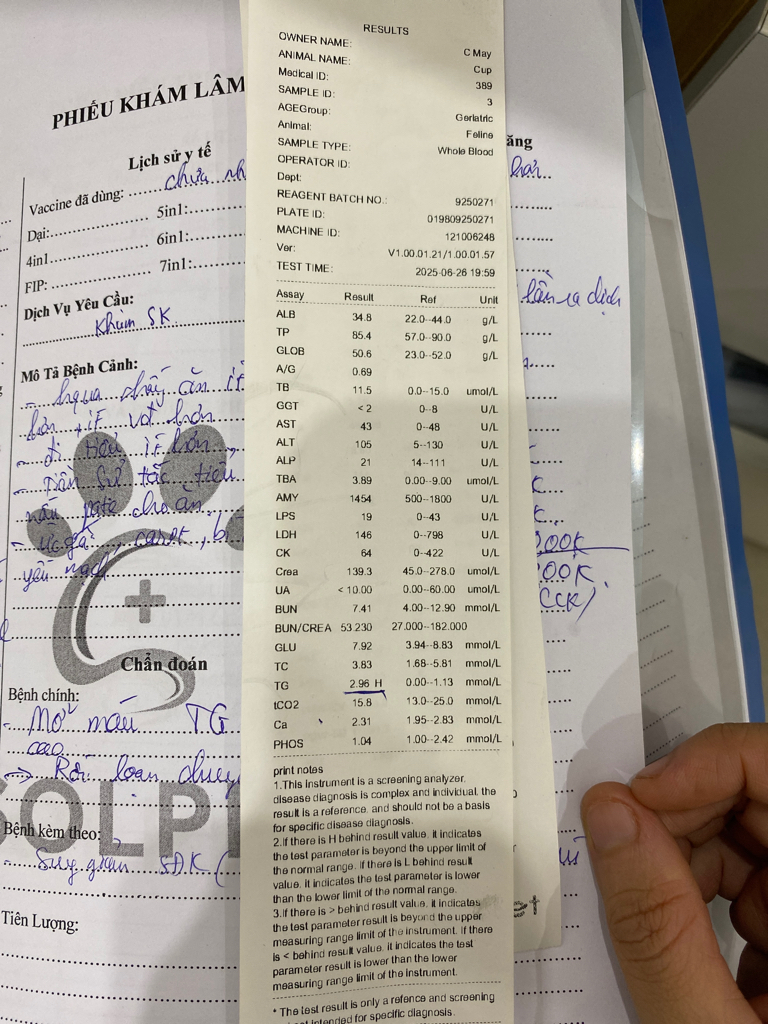 PHIẾU KHÁM LÂM
Lịch sử y tế
Vaccine đã dùng: chưa
Dại:
5in1:
4in1
6in1:
FIP:
7in1:
Dịch Vụ Yêu Cầu:
Khám SK
Mô Tả Bệnh Cảnh:
ăn ít
hơn, ít vđ hơn
đi ít hơn
Tiền sử tắc tiểu
nấu pate cho ăn
Ức gà, carot, bí
Chẩn đoán
Bệnh chính:
- Mỡ máu TG
cao
→ Rối loạn chuy
Bệnh kèm theo:
- Suy giảm SĐK (
Tiên Lượng:
RESULTS
OWNER NAME: C May
ANIMAL NAME: Cup
Medical ID: 389
SAMPLE ID: 3
AGEGroup: Geriatric
Animal: Feline
SAMPLE TYPE: Whole Blood
OPERATOR ID:
Dept:
REAGENT BATCH NO.: 9250271
PLATE ID: 019809250271
MACHINE ID: 121006248
Ver: V1.00.01.21/1.00.01.57
TEST TIME: 2025-06-26 19:59
Assay Result Ref Unit
ALB 34.8 22.0--44.0 g/L
TP 85.4 57.0--90.0 g/L
GLOB 50.6 23.0--52.0 g/L
A/G 0.69
TB 11.5 0.0--15.0 umol/L
GGT < 2 0--8 U/L
AST 43 0--48 U/L
ALT 105 5--130 U/L
ALP 21 14--111 U/L
TBA 3.89 0.00--9.00 umol/L
AMY 1454 500--1800 U/L
LPS 19 0--43 U/L
LDH 146 0--798 U/L
CK 64 0--422 U/L
Crea 139.3 45.0--278.0 umol/L
UA < 10.00 0.00--60.00 umol/L
BUN 7.41 4.00--12.90 mmol/L
BUN/CREA 53.230 27.000--182.000
GLU 7.92 3.94--8.83 mmol/L
TC 3.83 1.68--5.81 mmol/L
TG 2.96 H 0.00--1.13 mmol/L
tCO2 15.8 13.0--25.0 mmol/L
Ca 2.31 1.95--2.83 mmol/L
PHOS 1.04 1.00--2.42 mmol/L
print notes
1.This instrument is a screening analyzer,
disease diagnosis is complex and individual, the
result is a reference, and should not be a basis
for specific disease diagnosis.
2.If there is H behind result value, it indicates
the test parameter is beyond the upper limit of
the normal range. If there is L behind result
value, it indicates the test parameter is lower
than the lower limit of the normal range.
3.If there is > behind result value, it indicates
the test parameter result is beyond the upper
measuring range limit of the instrument. If there
is < behind result value, it indicates the test
parameter result is lower than the lower
measuring range limit of the instrument.
* The test result is only a refence and screening
intended for specific diagnosis.
ăng
lần ra dịch
00K
00K.
(CCK)